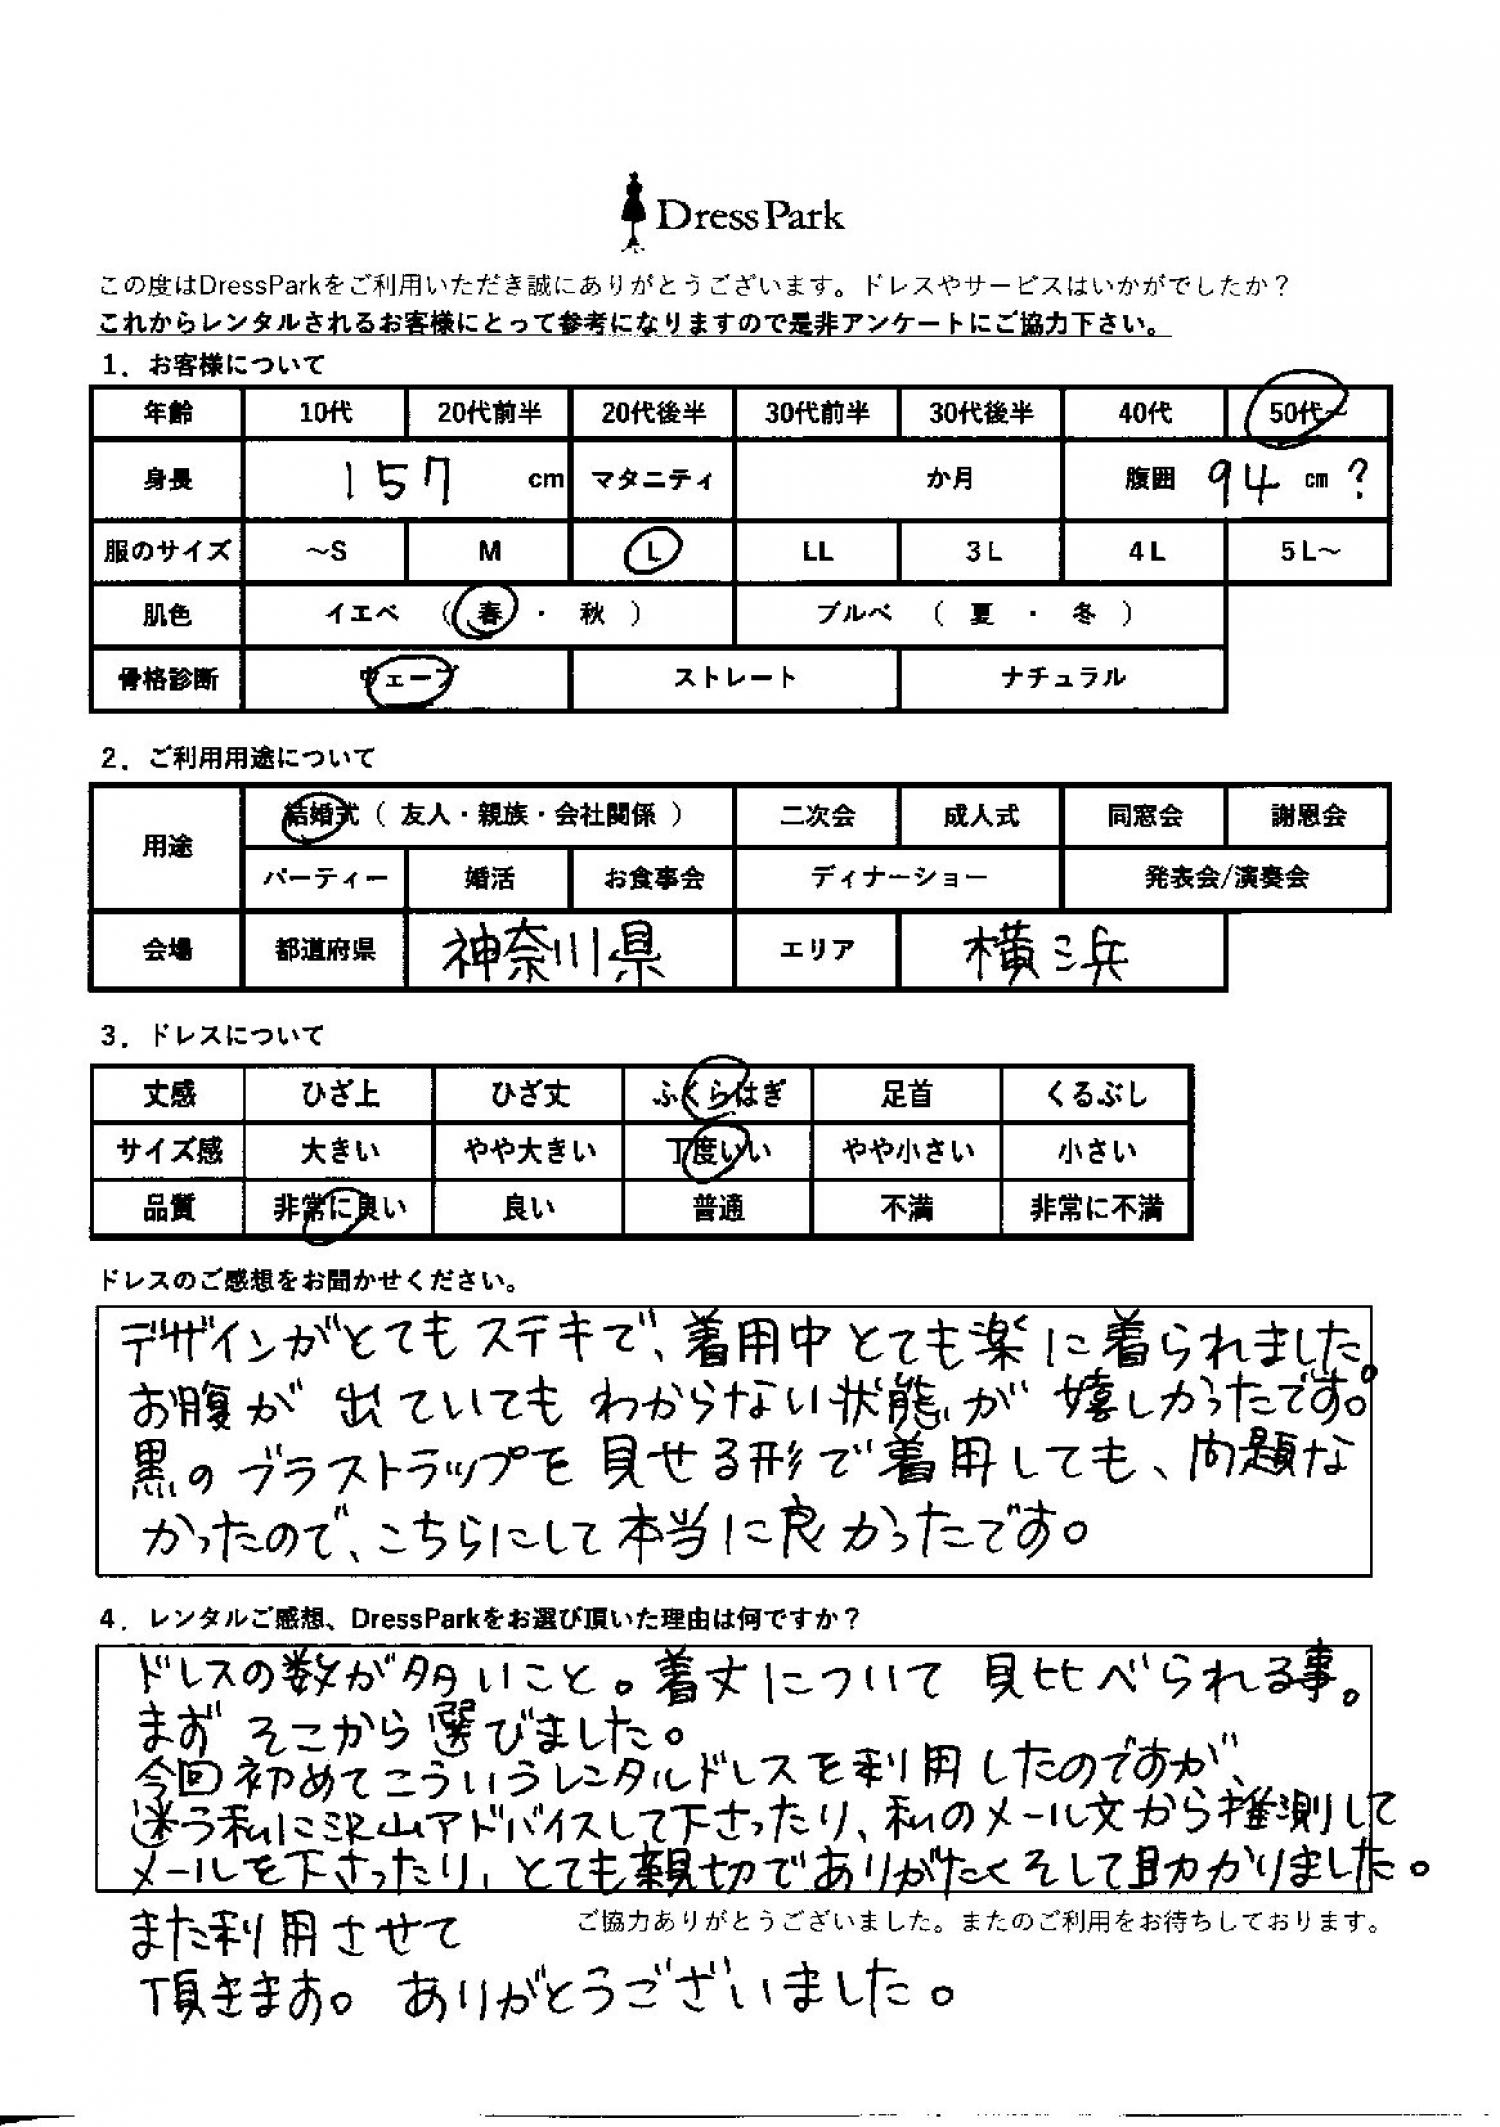 Dress Park
この度はDressParkをご利用いただき誠にありがとうございます。ドレスやサービスはいかがでしたか？
これからレンタルされるお客様にとって参考になりますので是非アンケートにご協力下さい。
1．お客様について
年齢 10代 20代前半 20代後半 30代前半 30代後半 40代 50代～
身長 157 cm マタニティ か月 腹囲 94 cm ?
服のサイズ ～S M L LL 3L 4L 5L～
肌色 イエベ （ 春 ・ 秋 ） ブルベ （ 夏 ・ 冬 ）
骨格診断 ウェーブ ストレート ナチュラル
2．ご利用用途について
用途 結婚式（ 友人・親族・会社関係 ） 二次会 成人式 同窓会 謝恩会
パーティー 婚活 お食事会 ディナーショー 発表会/演奏会
会場 都道府県 神奈川県 エリア 横浜
3．ドレスについて
丈感 ひざ上 ひざ丈 ふくらはぎ 足首 くるぶし
サイズ感 大きい やや大きい 丁度いい やや小さい 小さい
品質 非常に良い 良い 普通 不満 非常に不満
ドレスのご感想をお聞かせください。
デザインがとてもステキで、着用中とても楽に着られました。
お腹が出ていてもわからない状態が嬉しかったです。
黒のブラストラップを見せる形で着用しても、問題な
かったので、こちらにして本当に良かったです。
4．レンタルご感想、DressParkをお選び頂いた理由は何ですか？
ドレスの数が多いこと。着丈について見比べられる事。
まずそこから選びました。
今回初めてこういうレンタルドレスを利用したのですが、
迷う私に沢山アドバイスして下さったり、私のメール文から推測して
メールを下さったり、とても親切でありがたくそして助かりました。
また利用させて
ご協力ありがとうございました。またのご利用をお待ちしております。
頂きます。ありがとうございました。